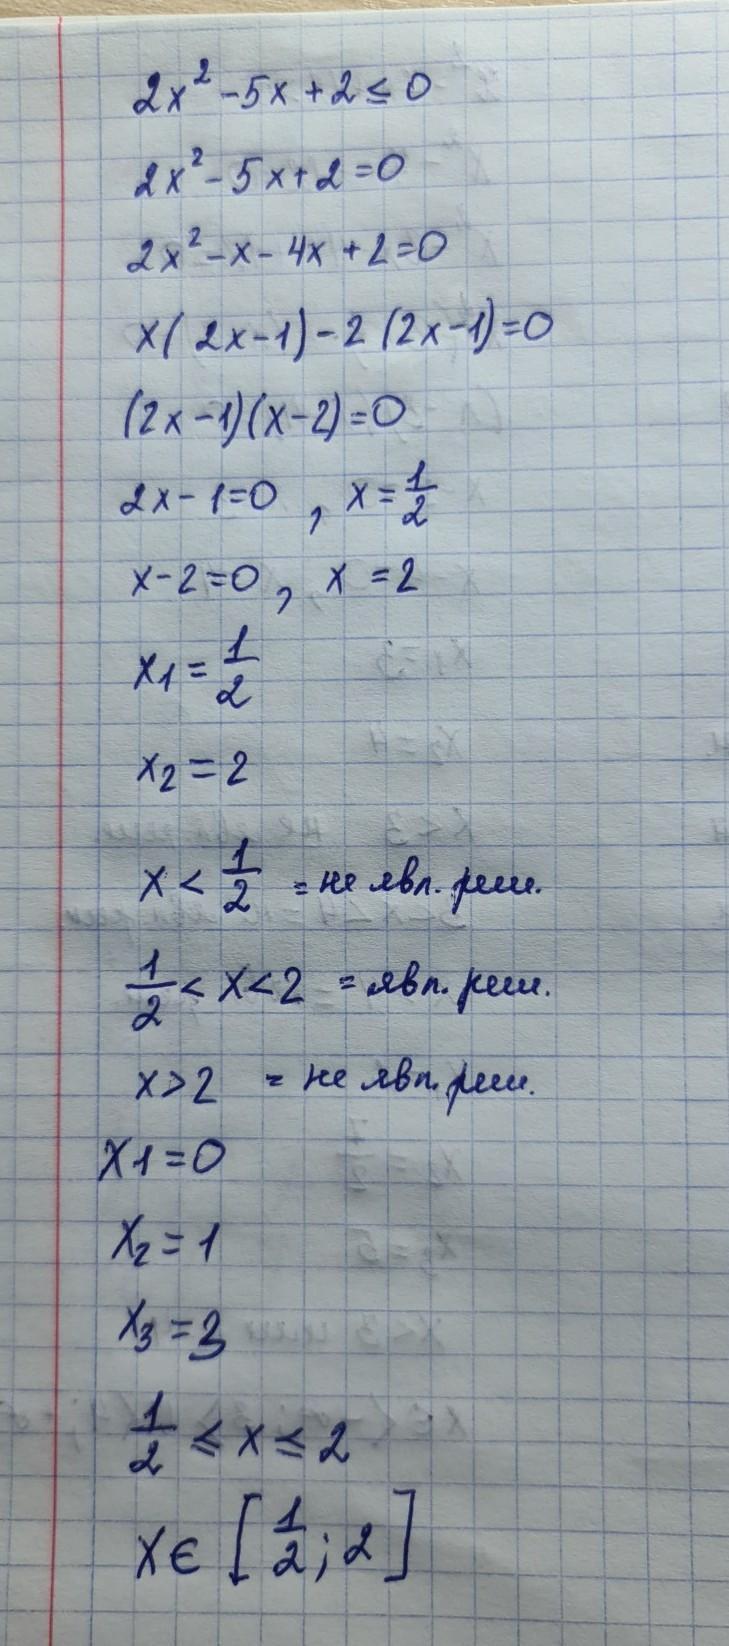 2x² - 5x + 2 ≤ 0
2x² - 5x + 2 = 0
2x² - x - 4x + 2 = 0
x(2x - 1) - 2(2x - 1) = 0
(2x - 1)(x - 2) = 0
2x - 1 = 0, x = 1/2
x - 2 = 0, x = 2
x1 = 1/2
x2 = 2
x < 1/2 = не явл. реш.
1/2 < x < 2 = явл. реш.
x > 2 = не явл. реш.
x1 = 0
x2 = 1
x3 = 3
1/2 ≤ x ≤ 2
x ∈ [1/2; 2]